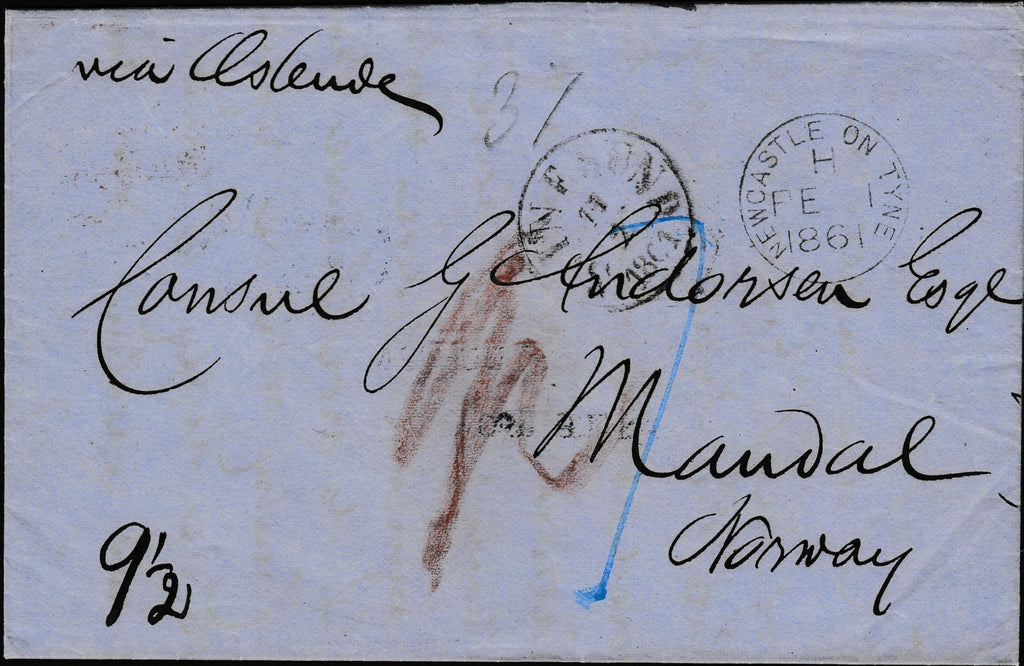 via Ostende
31
NEWCASTLE ON TYNE
H
FE 1
1861
11
2
1861
Consul G Andorsen Esqe
Mandal
Norway
7
9 1/2